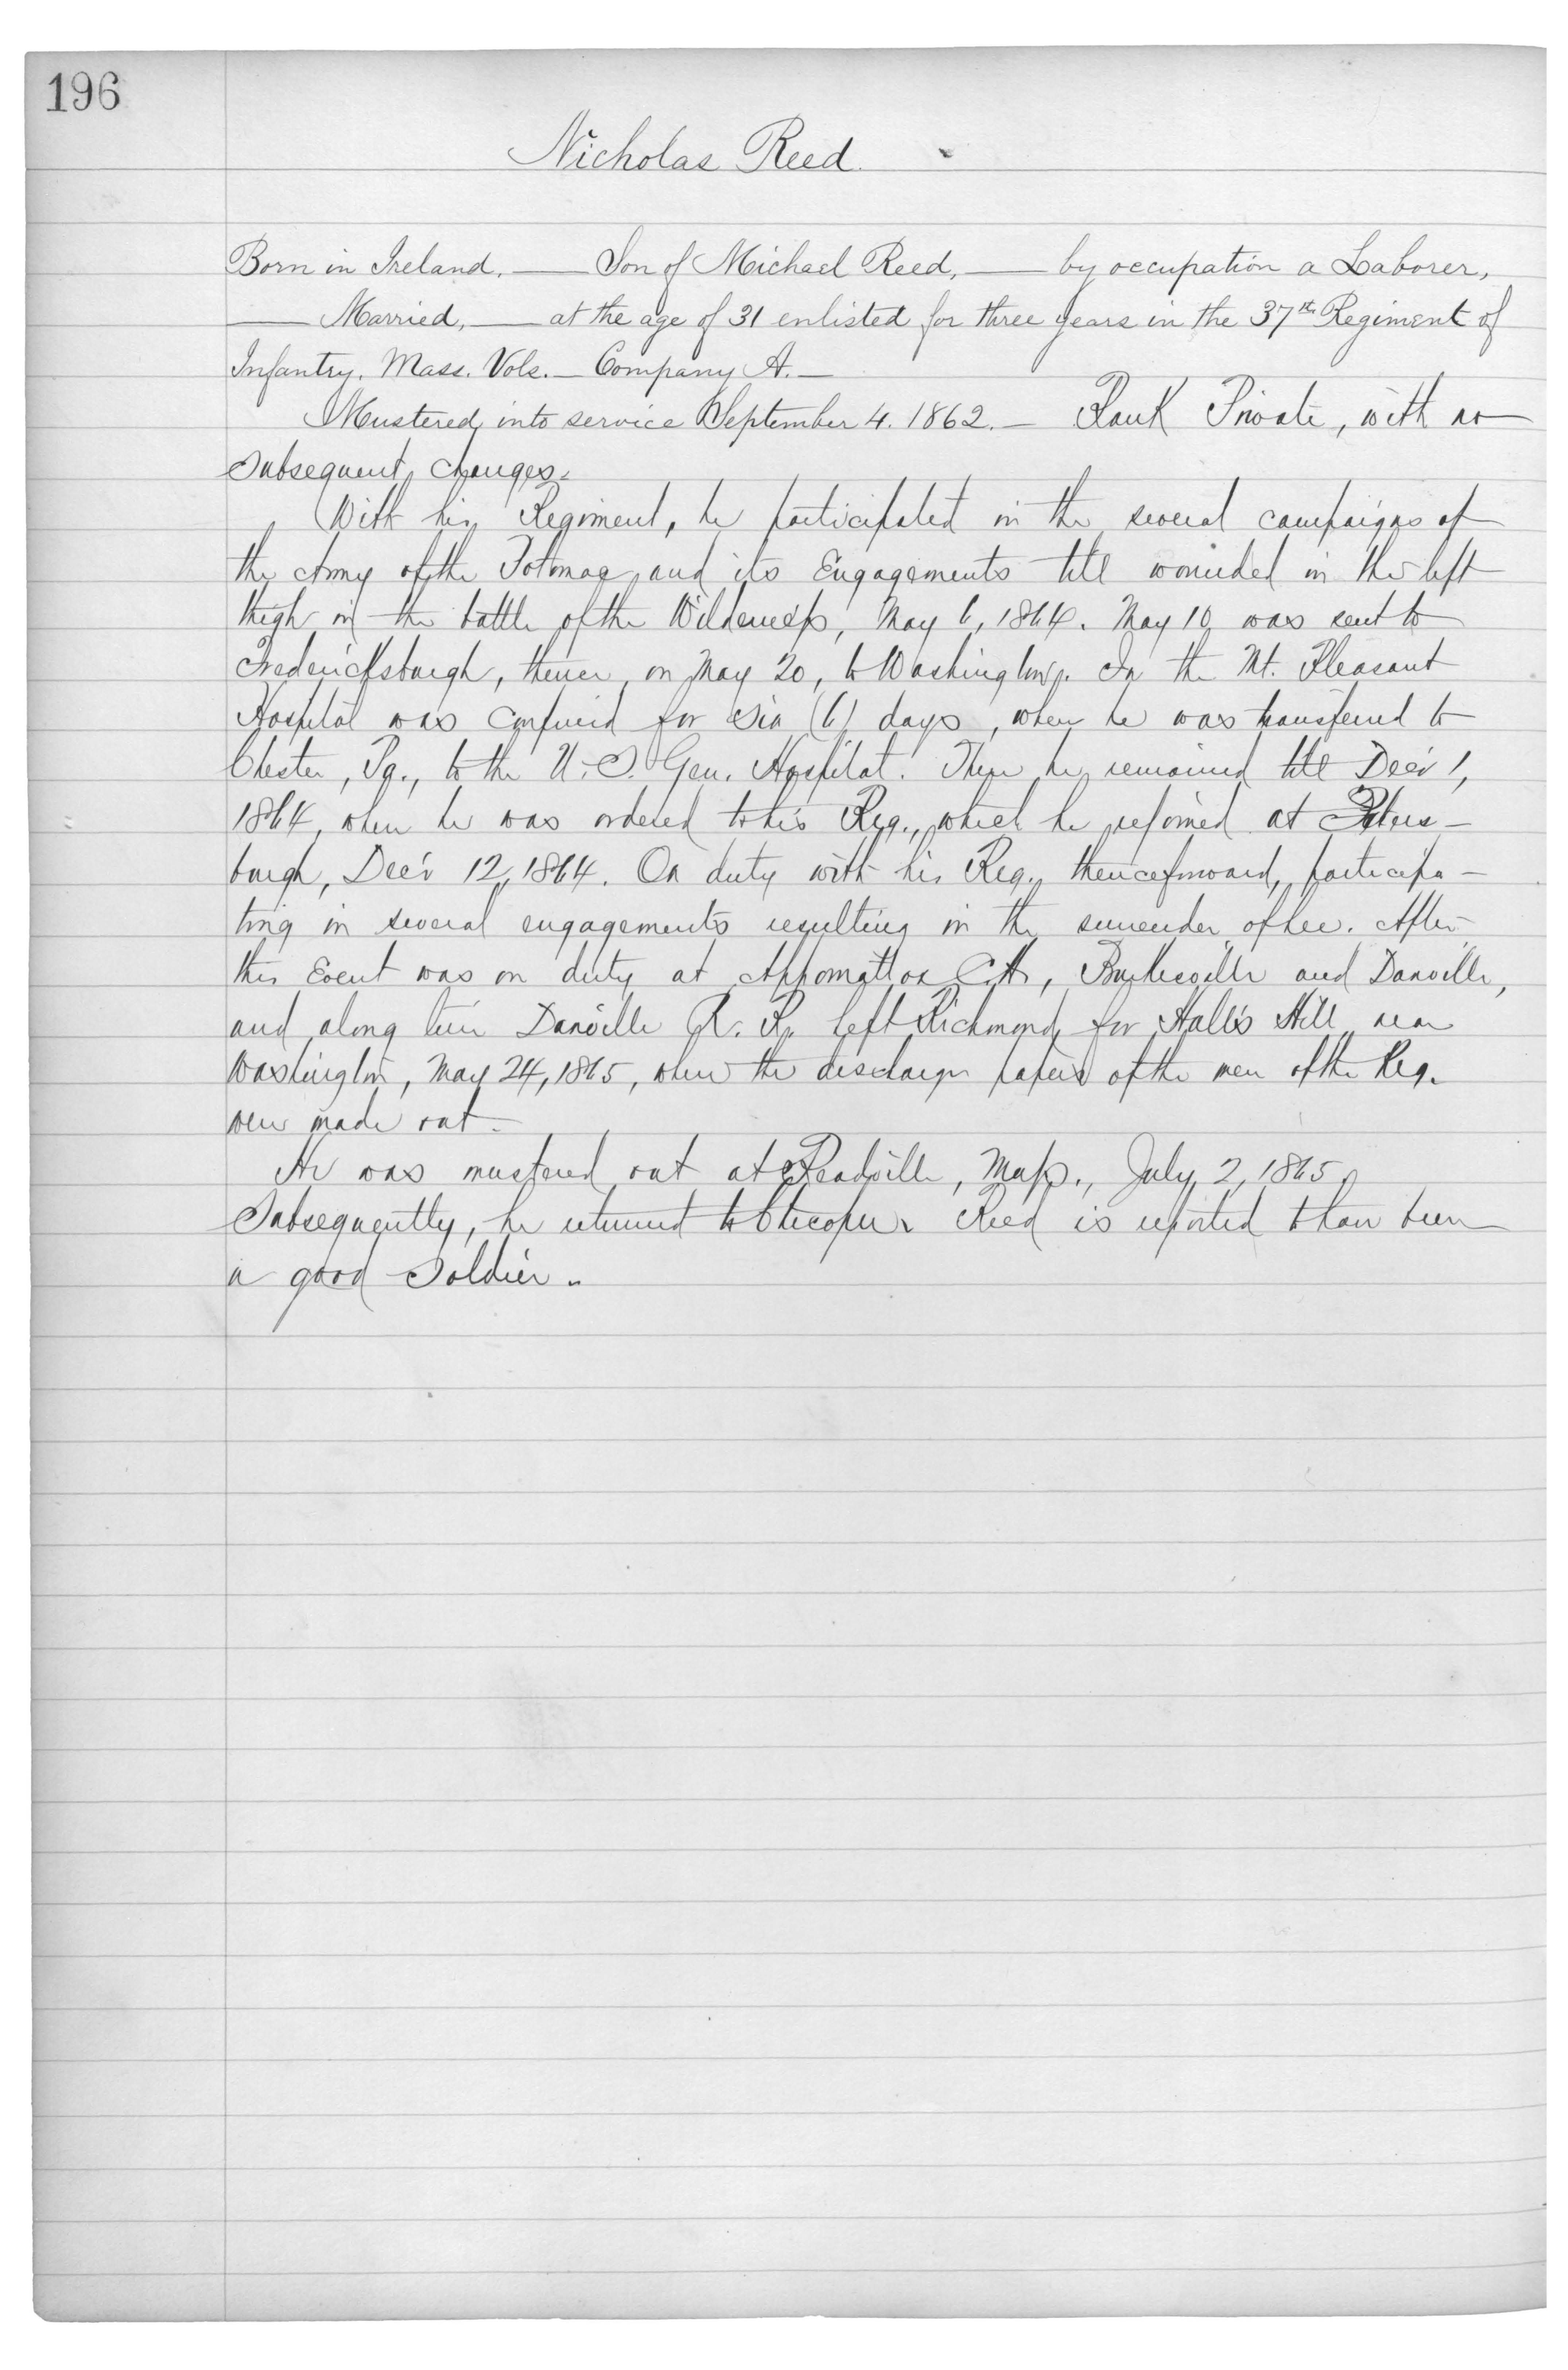 196
Nicholas Reed.
Born in Ireland, — Son of Michael Reed, — by occupation a Laborer,
— Married, — at the age of 31 enlisted for three years in the 37th Regiment of
Infantry. Mass. Vols. — Company A. —
Mustered into service September 4. 1862. — Rank Private, with no
subsequent changes.
With his Regiment, he participated in the several campaigns of
the Army of the Potomac and its Engagements till wounded in the left
thigh in the battle of the Wilderness, May 6, 1864. May 10 was sent to
Fredericksburgh, thence, on May 20, to Washington. In the Mt. Pleasant
Hospital was confined for six (6) days, when he was transferred to
Chester, Pa., to the U.S. Gen. Hospital. There he remained till Dec'r 1,
1864, when he was ordered to his Reg., which he rejoined at Peters-
burgh, Dec'r 12, 1864. On duty with his Reg. thenceforward, participa-
ting in several engagements resulting in the surrender of Lee. After
this Event was on duty at Appomattox C.H., Burkesville and Danville,
and along line Danville R. R. Left Richmond for Hall's Hill near
Washington, May 24, 1865, when the discharge papers of the men of the Reg.
were made out.
He was mustered out at Readville, Mass., July 2, 1865.
Subsequently, he returned to Chicopee. Reed is reported to have been
a good soldier.